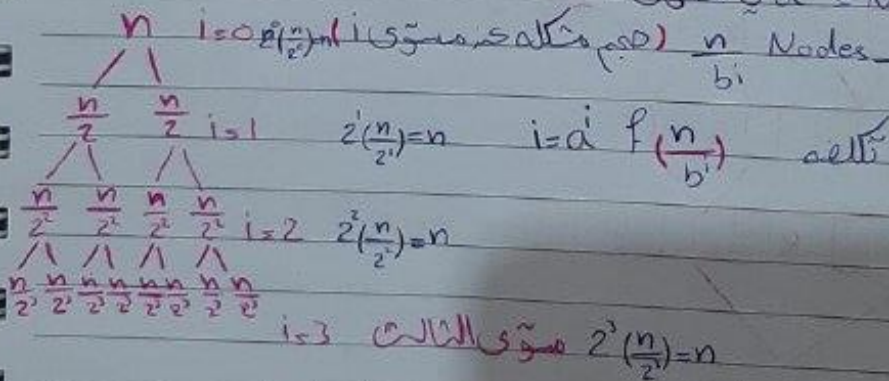 n i=0 2⁰(n/2⁰)=n (حجم مشكلة مستوى i) n/bⁱ Nodes
n/2 n/2 i=1 2¹(n/2¹)=n i=aⁱ f(n/bⁱ) تكلفة
n/2² n/2² n/2² n/2² i=2 2²(n/2²)=n
n/2³ n/2³ n/2³ n/2³ n/2³ n/2³ n/2³ n/2³
i=3 مستوى الثالث 2³(n/2³)=n